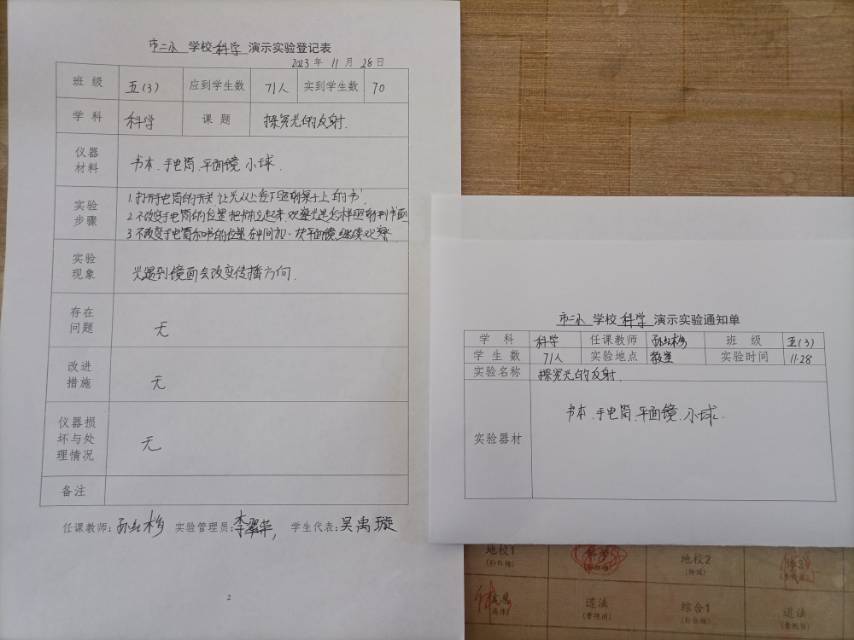 市二小 学校 科学 演示实验登记表
2023 年 11 月 28 日
班 级 五(3) 应到学生数 71人 实到学生数 70
学 科 科学 课 题 探究光的反射.
仪器材料 书本、手电筒、平面镜、小球.
实验步骤 1.打开手电筒的开关
2.不改变手电筒的位置 把书本立起来,观察光是怎样照射到书面
3.不改变手电筒和书的位置 在中间加一块平面镜 继续观察
实验现象 光遇到镜面会改变传播方向.
存在问题 无
改进措施 无
仪器损坏与处理情况 无
备注
任课教师: 实验管理员: 学生代表:吴禹璇
2
市二小 学校 科学 演示实验通知单
学 科 科学 任课教师 班 级 五(3)
学 生 数 71人 实验地点 教室 实验时间 11.28
实验名称 探究光的反射.
实验器材 书本、手电筒、平面镜、小球.
地校1 地校2
道法 综合1 道法